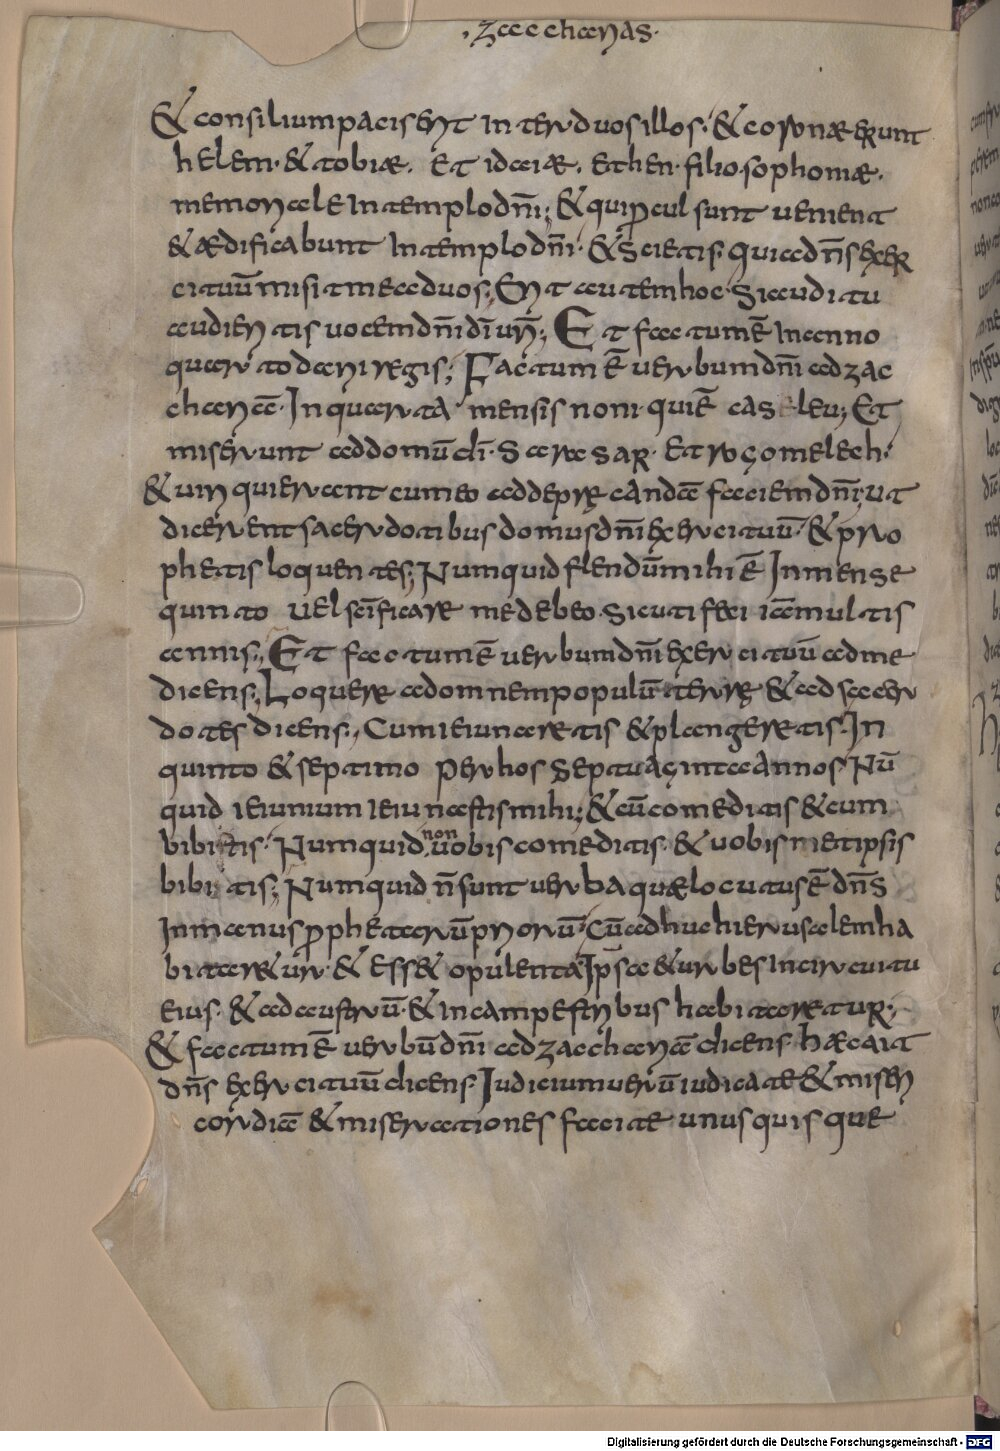 · zacharias ·
& consilium pacis erit inter duos illos · & coronæ erunt
helem · & tobiæ · et idaiæ · et hen · filio sophoniæ ·
memoriale in templo dn̄i ; & qui p̱cul sunt uenient
& ædificabunt in templo dn̄i · & scietis · quia dn̄s exer
cituū misit me ad uos ; Erit autem hoc · si auditu
audieritis uocem dn̄i dī ur̄i ; Et factum ē in anno
quarto darii regis ; Factum ē uerbum dn̄i ad zac
chariā · In quarta mensis noni · qui ē casleu ; Et
miserunt ad domū dī · sarasar · et rogomelech ·
& uiri qui erant cum eo ad depręcandā faciem dn̄i ; ut
dicerent sacerdotibus domus dn̄i exercituū · & pro
phetis loquentes ; Numquid flendūm mihi ē In mense
quinto uel scīficare me debeo · sicuti feci iā multis
annis ; Et factum ē uerbum dn̄i exercituū ad me
dicens ; Loquere ad omnem populū terrę & ad sacer
dotes dicens ; Cum ieiunaretis & plangeretis · In
quinto & septimo per hos septuaginta annos · Nū
quid ieiunium ieiunastis mihi ; & cū comeditis & cum
bibistis · Numquid non uobis comeditis & uobismetipsis
bibitis ; Numquid n̄ sunt uerba quæ locutus ē dn̄s
In manus p̱phetarū priorū · Cū adhuc hierusalem ha
bitaretur · & esset opulenta · Ip̄sa & urbes in circuitu
eius · & ad austrū · & in campestribus habitaretur ·
& factum ē uerbū dn̄i ad zacchariā dicens · hæc ait
dn̄s exercituū dicens · Iudicium uerū iudicate & miseri
cordiā & miserationes facite unusquisque
Digitalisierung gefördert durch die Deutsche Forschungsgemeinschaft - DFG